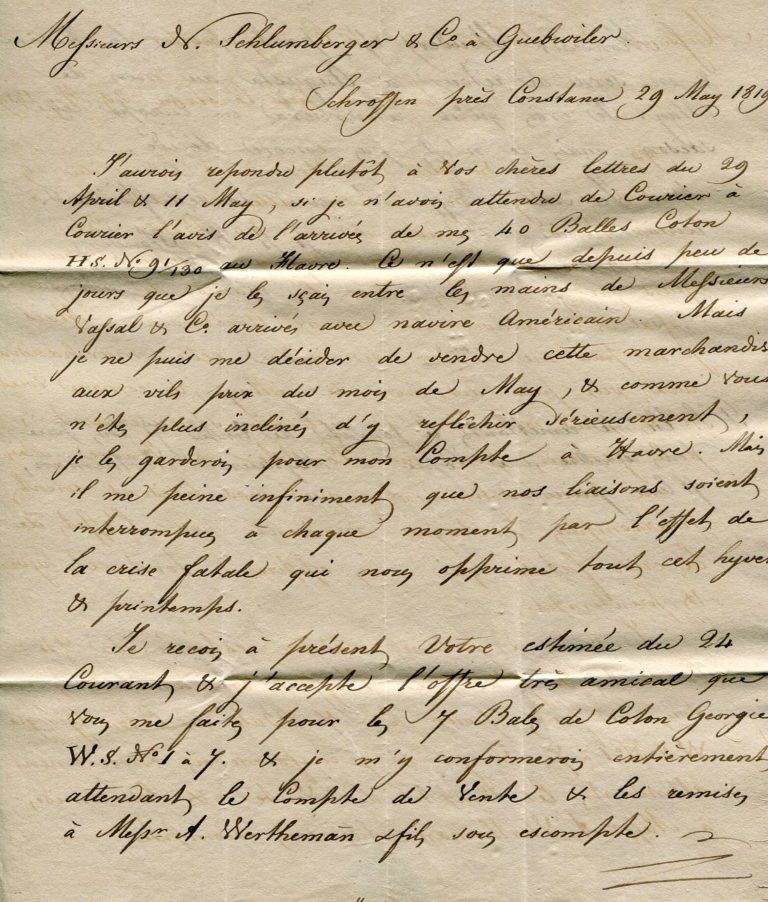 Messieurs N. Schlumberger & Co à Guebwiler.
Schroffen près Constance 29 May 1819
J'aurois repondu plutôt à vos chères lettres du 29
April & 11 May, si je n'avois attendu de Courier à
Courier l'avis de l'arrivée de mes 40 Balles Coton
H.S. No 91/130 au Havre. Ce n'est que depuis peu de
jours que je les sçais entre les mains de Messieurs
Vassal & Co. arrivés avec navire Américain. Mais
je ne puis me décider de vendre cette marchandise
aux vils prix du mois de May, & comme vous
n'êtes plus inclinés d'y reflêchir sérieusement,
je les garderois pour mon Compte à Havre. Mais
il me peine infiniment que nos liaisons soient
interrompues à chaque moment par l'effet de
la crise fatale qui nous opprime tout cet hyver
& printemps.
Je recois à présent Votre estimée du 24
Courant & j'accepte l'offre très amical que
vous me faites pour les 7 Bales de Coton Georgie
W.S. No 1 à 7. & je m'y conformerois entièrement
attendant le Compte de Vente & les remises
à Messrs A. Werthemañ & fils sous escompte.